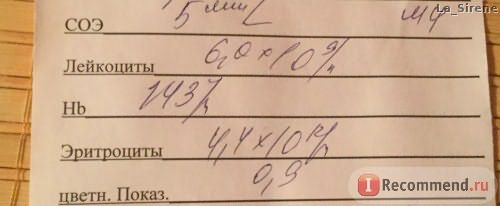 La_Sirene
СОЭ 5 мм/
Лейкоциты 6,0 × 10⁹/л
Hb 143 г/л
Эритроциты 4,4 × 10¹²/л
цветн. Показ. 0,9
IRecommend.ru